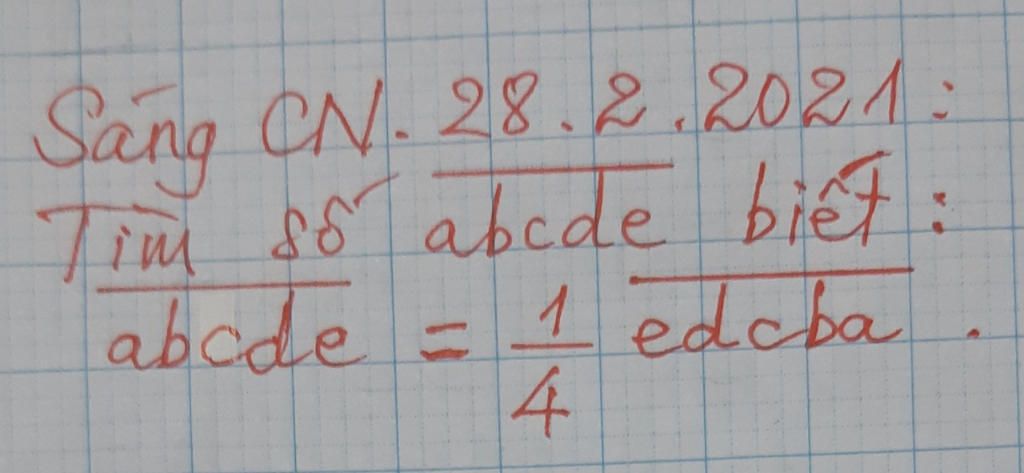 Sáng CN. 28.2.2021:
Tìm số \overline{abcde} biết:
\overline{abcde} = \frac{1}{4} \overline{edcba} .